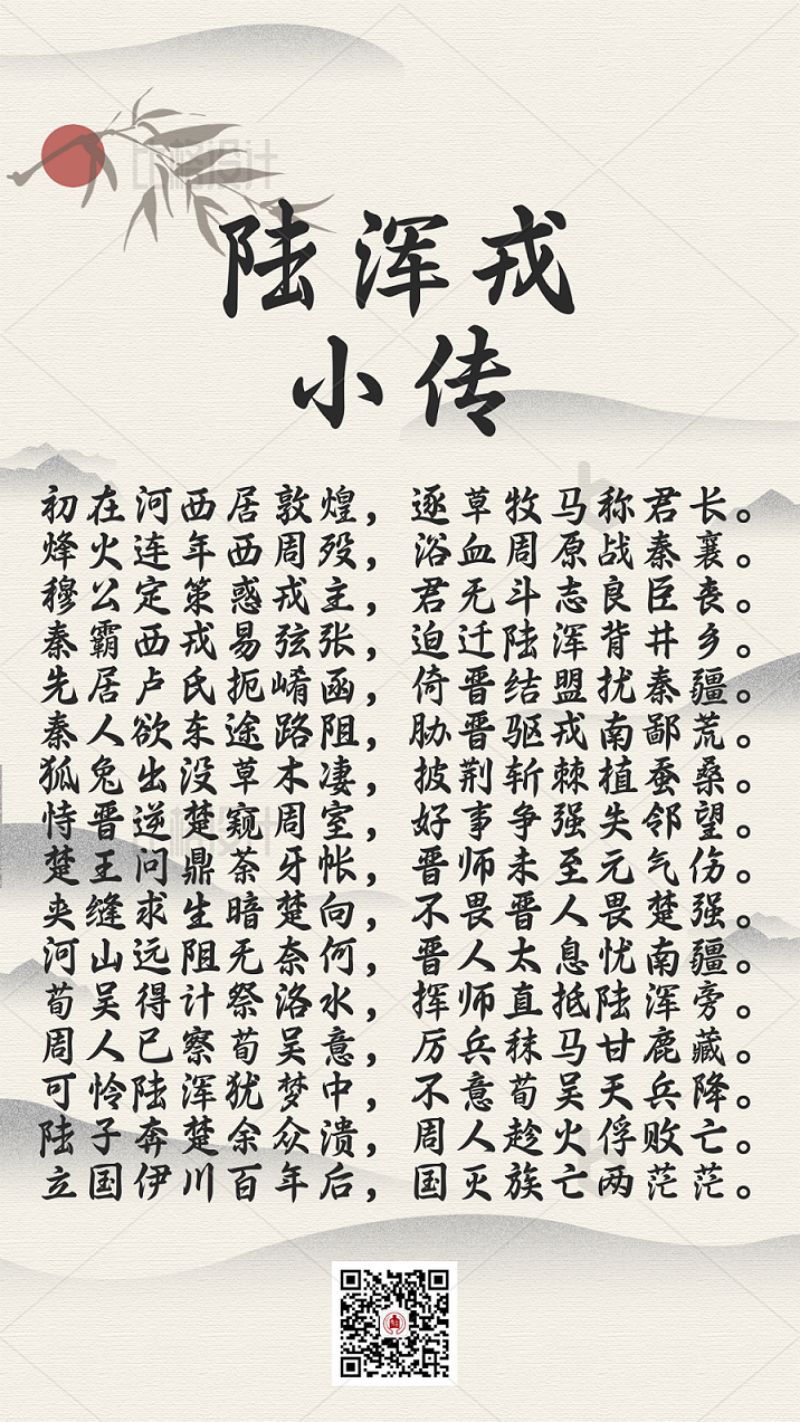 比格设计
陆浑戎
小传
初在河西居敦煌，逐草牧马称君长。
烽火连年西周殁，浴血周原战秦襄。
穆公定策惑戎主，君无斗志良臣丧。
秦霸西戎易弦张，迫迁陆浑背井乡。
先居卢氏扼崤函，倚晋结盟扰秦疆。
秦人欲东途路阻，胁晋驱戎南鄙荒。
狐兔出没草木凄，披荆斩棘植蚕桑。
恃晋逆楚窥周室，好事争强失邻望。
楚王问鼎荼牙帐，晋师未至元气伤。
夹缝求生暗楚向，不畏晋人畏楚强。
河山远阻无奈何，晋人太息忧南疆。
荀吴得计祭洛水，挥师直抵陆浑旁。
周人已察荀吴意，厉兵秣马甘鹿藏。
可怜陆浑犹梦中，不意荀吴天兵降。
陆子奔楚余众溃，周人趁火俘败亡。
立国伊川百年后，国灭族亡两茫茫。